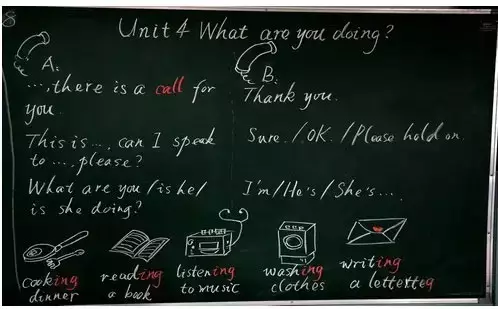 8
Unit 4 What are you doing?
A:
...,there is a call for
you.
This is ..., can I speak
to ...., please?
What are you/is he/
is she doing?
B:
Thank you.
Sure./OK./Please hold on.
I'm/He's/She's....
cooking
dinner
reading
a book
listening
to music
washing
clothes
writing
a letterteg